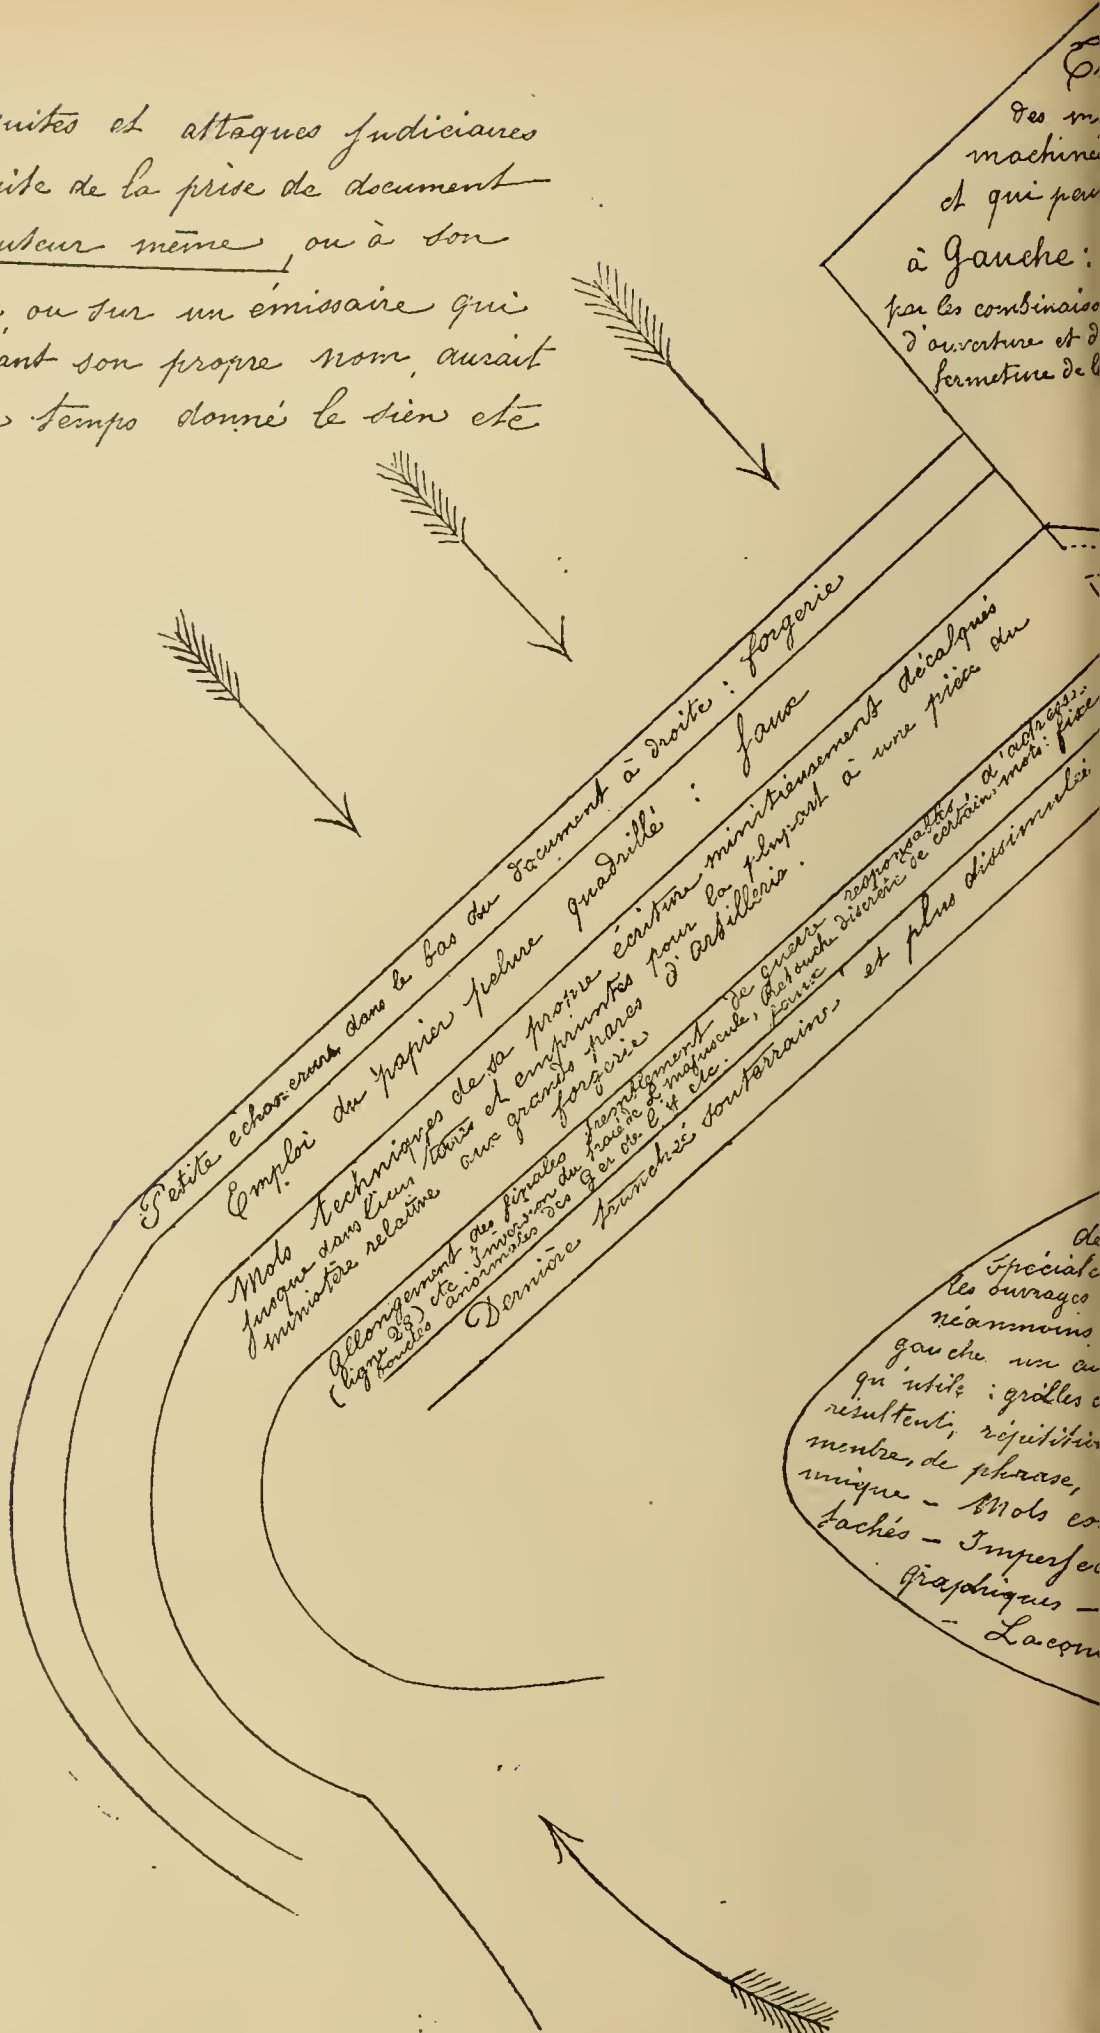 uites et attaques judiciaires
uite de la prise de document
uteur même, ou à son
, ou sur un émissaire qui
ant son propre nom, aurait
temps donné le sien etc
des m
machiné
et qui peu
à Gauche :
par les combinaiso
d'ouverture et d
fermeture de l
Petite échancrure dans le bas du document à droite : forgerie
Emploi du papier pelure quadrillé : faux
Mots techniques de sa propre écriture minitieusement décalqués
jusque dans leurs et empruntés pour la plupart à une pièce du
ministère relative aux grands parcs d'artillerie :
forgerie
Allongement des finales de guerre responsable d'adress.
(ligne 23) etc Inversion du tracé de L majuscule, Retouche discrète de certains mots : fixe
boucles anormales des 9 et de l'4 etc. faux
Dernière tranchée souterraine et plus dissimulée
de
spéciale
les ouvrages
néanmoins
gauche un au
qu'utile : grilles
résultent, répétitio
membre, de phrase,
unique – Mots
tachés – Imperfec
graphiques –
– Lacon